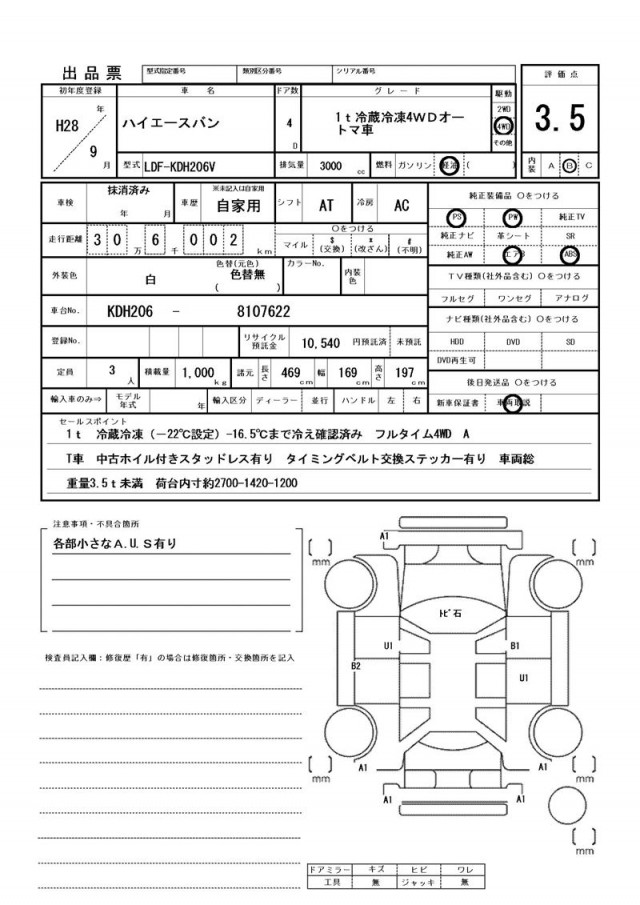 出品票 型式指定番号 類別区分番号 シリアル番号
評価点
3.5
初年度登録 車名 ドア数 グレード 駆動
H28 年 9 月
ハイエースバン
4 D
1t冷蔵冷凍4WDオー
トマ車
2WD
4WD
その他
型式 LDF-KDH206V 排気量 3000 cc 燃料 ガソリン 軽油 ( )
内装 A B C
車検 抹消済み 年 月 車歴 ※未記入は自家用 自家用 シフト AT 冷房 AC
走行距離 30万6千002km
○をつける
マイル $(交換) *(改ざん) #(不明)
外装色 白 色替(元色) 色替無 ( ) カラーNo. 内装色
車台No. KDH206 - 8107622
登録No. リサイクル預託金 10,540 円預託済 未預託
定員 3 人 積載量 1,000 kg 諸元 長さ 469 cm 幅 169 cm 高さ 197 cm
輸入車のみ⇒ モデル年式 年 輸入区分 ディーラー 並行 ハンドル 左 右
純正装備品 ○をつける
PS PW 純正TV
純正ナビ 革シート SR
純正AW エアB ABS
TV種類(社外品含む)○をつける
フルセグ ワンセグ アナログ
ナビ種類(社外品含む)○をつける
HDD DVD SD
DVD再生可
後日発送品 ○をつける
新車保証書 車両取説
セールスポイント
1t 冷蔵冷凍(-22℃設定)-16.5℃まで冷え確認済み フルタイム4WD A
T車 中古ホイル付きスタッドレス有り タイミングベルト交換ステッカー有り 車両総
重量3.5t未満 荷台内寸約2700-1420-1200
注意事項・不具合箇所
各部小さなA.U.S有り
検査員記入欄:修復歴「有」の場合は修復箇所・交換箇所を記入
A1
[ ] mm
[ ] mm
トビ石
U1
B1
B2
U1
[ ] mm
A1
A1
[ ] mm
A1
A1
[ ] mm
ドアミラー キズ ヒビ ワレ
工具 無 ジャッキ 無